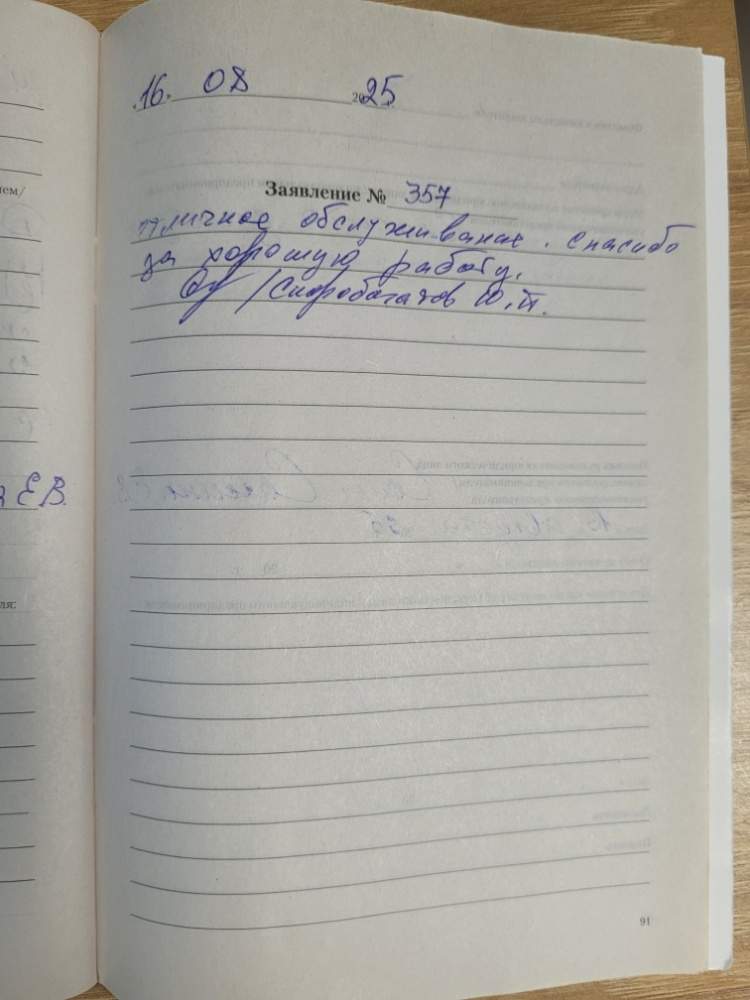 16. 08 2025
Заявление № 357
отличное обслуживание. Спасибо
за хорошую работу.
/Скоробогатов Ю.П.
ем/
Е.В.
ля:
91